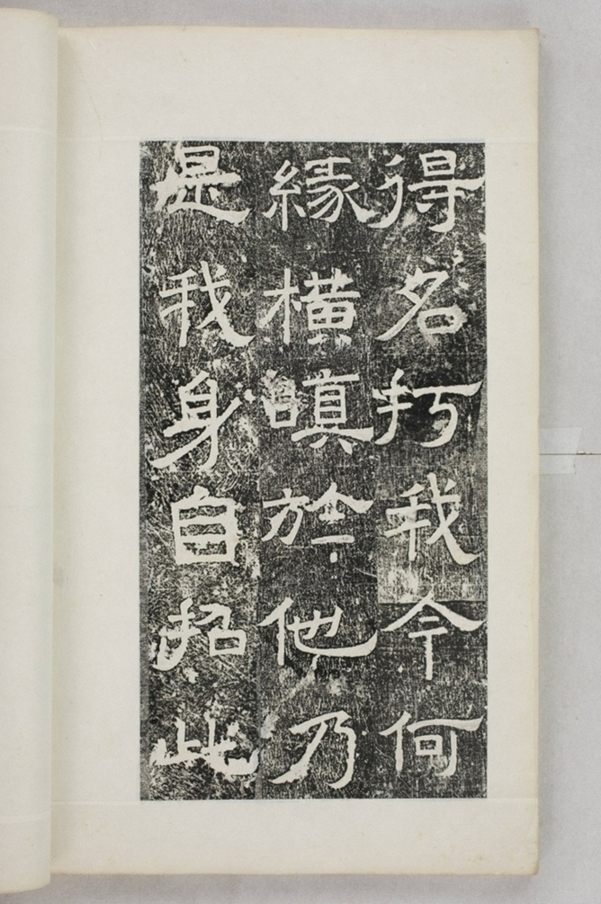 得名打我今何
緣橫瞋於他乃
是我身自招此